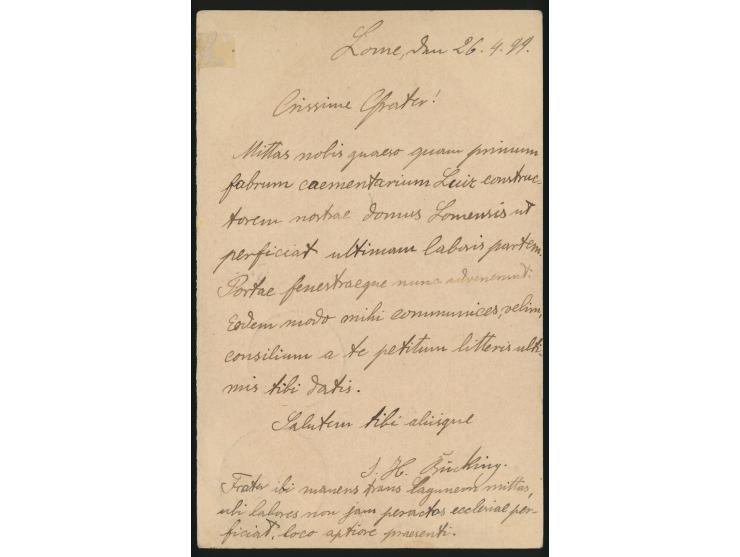 Lome, den 26. 4. 99.
Crissime Frater!
Mittas nobis quaeso quam primum
fabrum caementarium Luiz construc-
torem nostrae domus Lomensis ut
perficiat ultimam laboris partem.
Portae fenestraeque nunc advenerunt.
Eodem modo mihi communices, velim,
consilium a te petitum litteris ulti-
mis tibi datis.
Salutem tibi aliisque
J. H. Bücking.
Frater ibi manens trans Lagunem mittas,
ubi labores non jam peractos ecclesiae per-
ficiat, loco aptiore praesenti.